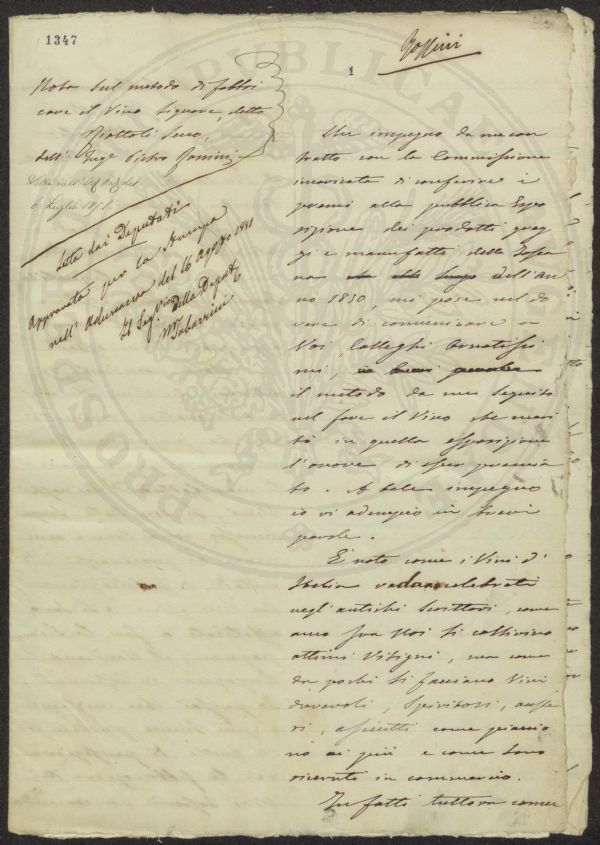 1347
1
Nota sul metodo di fabbri
care il Vino liquore, detto
Piattoli Secco,
dell' Inge Pietro
6 Luglio 1851.
Letta dai Deputati
Approvata per la Stampa
nell' Adunanza del 16 Agosto 1851
Il Seg.
della Deput.
M Tabarrini
Un impegno da me con
tratto con la Commissione
incaricata di conferire i
premi alla pubblica Espo
sizione dei prodotti greg
gi e manufatti della Tosca
na dell' An
no 1850, mi pose nel do
vere di comunicare a
Voi, Colleghi Ornatissi
mi,
il metodo da me seguito
nel fare il Vino che meri
tò in quella esposizione
l'onore di esser premia
to. A tale impegno
io vi adempio in brevi
parole.
È noto come i Vini d'
Italia celebrati
negl' antichi Scrittori, come
anco fra Noi si coltivino
ottimi Vitigni, ma come
da pochi si facciano Vini
durevoli, Spiritosi, auste
ri, asciutti come piaccio
no ai più e come sono
ricevuti in commercio.
In fatti tuttora come
PUBLICA
PROSP